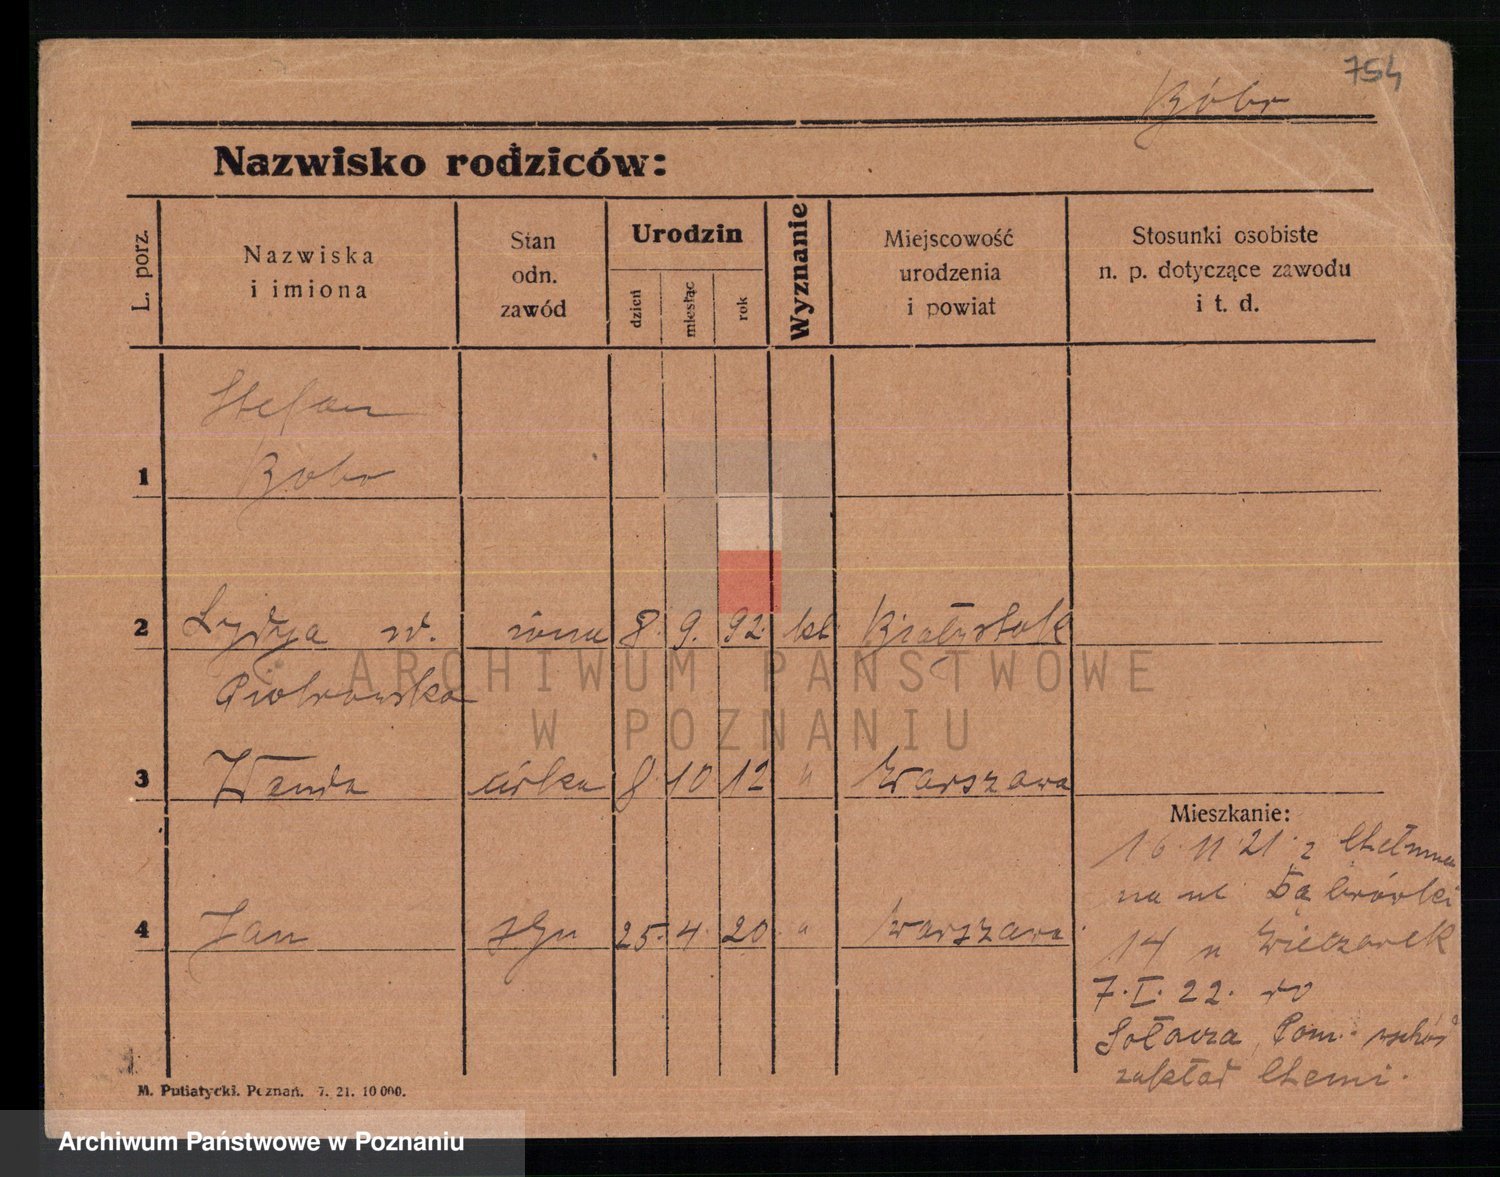 754
Bóbr
Nazwisko rodziców:
L. porz.
Nazwiska
i imiona
Stan
odn.
zawód
Urodzin
dzień
miesiąc
rok
Wyznanie
Miejscowość
urodzenia
i powiat
Stosunki osobiste
n. p. dotyczące zawodu
i t. d.
Stefan
1 Bobr
2 Lydya żona 8. 9. 92. kt Białystok
Piotrowska
3 Wanda córka 8 10 12 " Warszawa
Mieszkanie:
16 11 21 z Chełmna
na ul Dąbrówki
4 Jan syn 25. 4. 20 " Warszawa
14 u Wieczorek
7. I. 22. do
Sołacza, Pom.
zakład Chemi.
M. Putiatycki. Poznań. 7. 21. 10 000.
ARCHIWUM PAŃSTWOWE
W POZNANIU
Archiwum Państwowe w Poznaniu